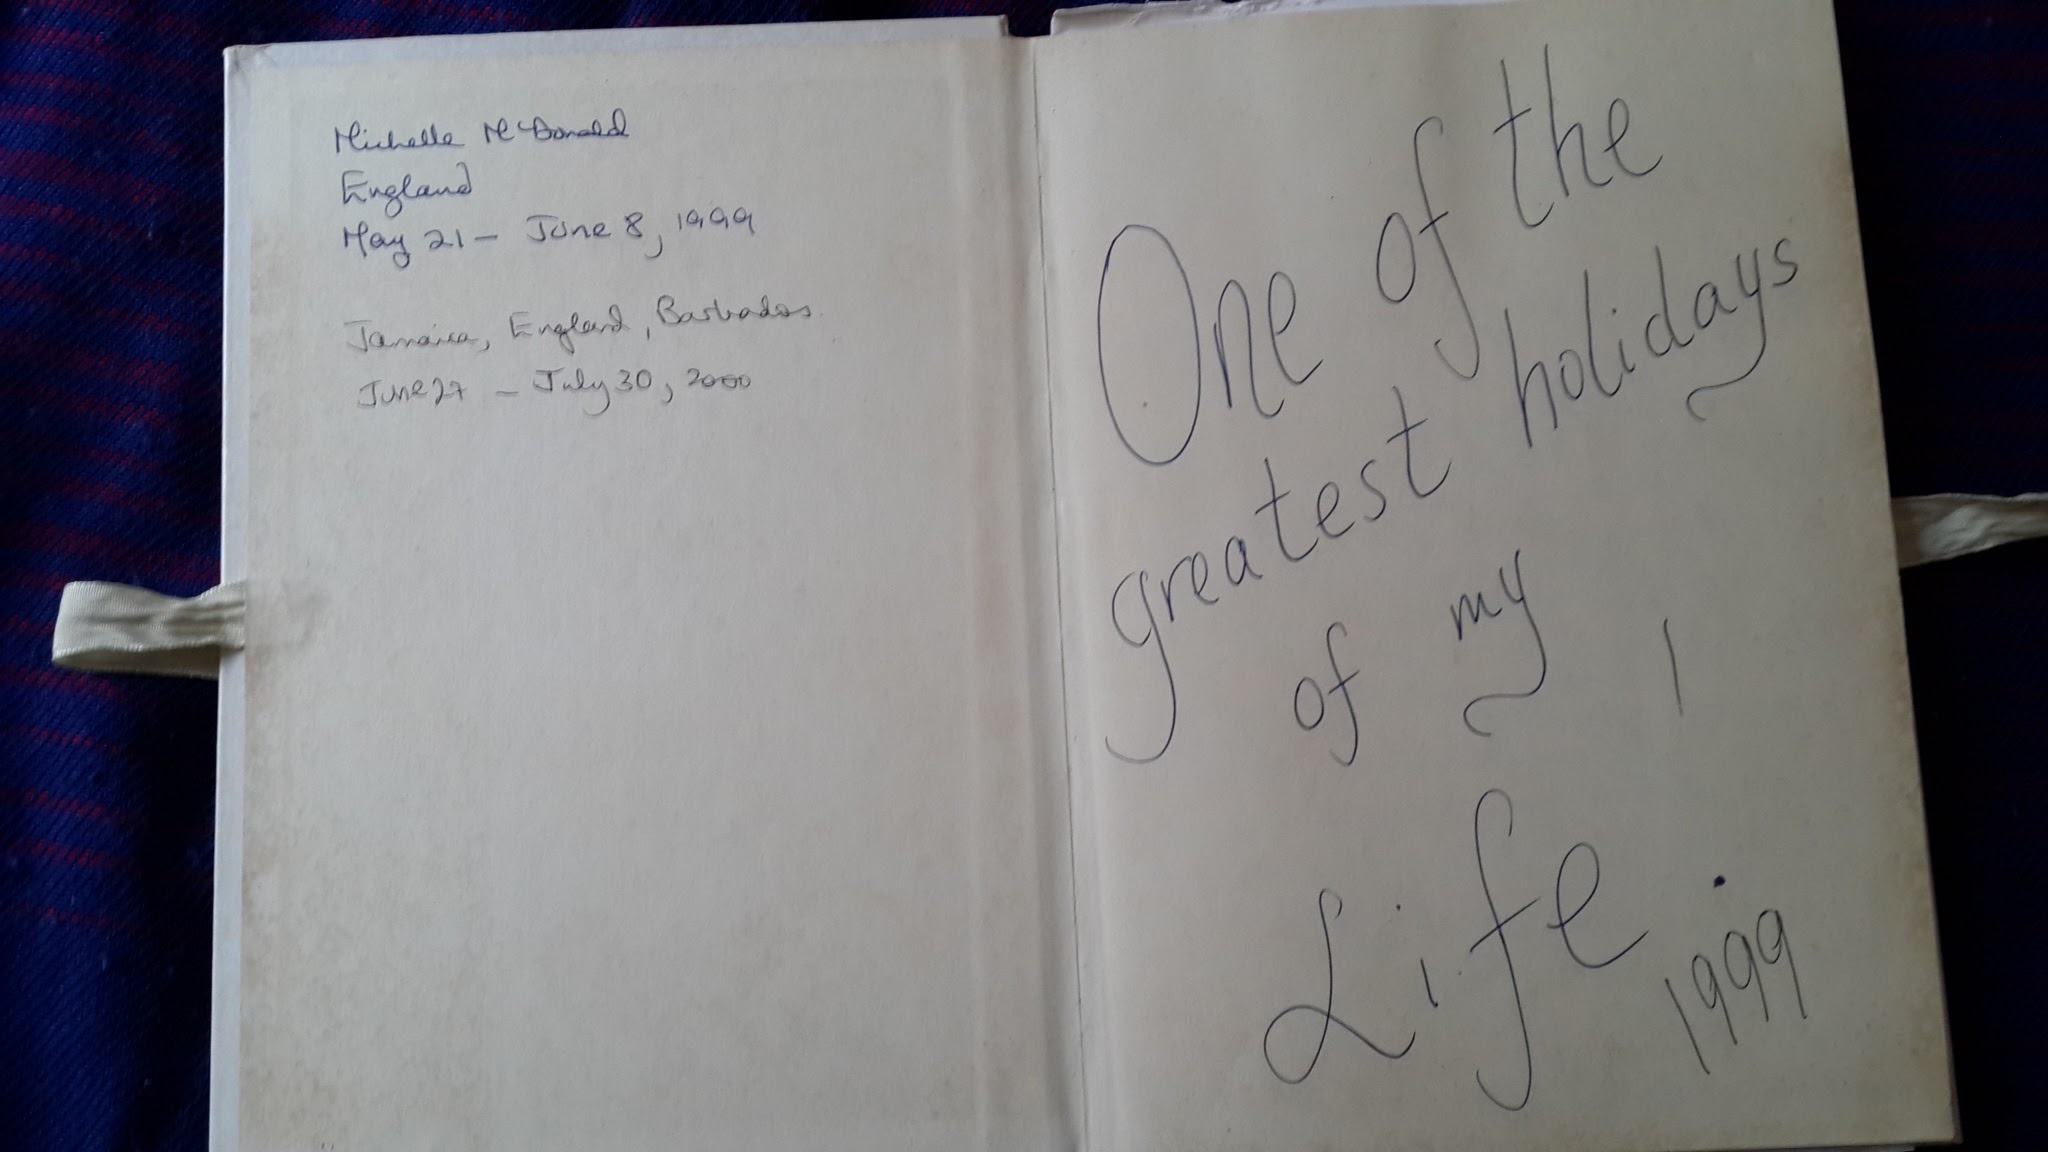 Michelle McDonald
England
May 21 - June 8, 1999
Jamaica, England, Barbados.
June 27 - July 30, 2000
One of the
greatest holidays
of my
Life
1999